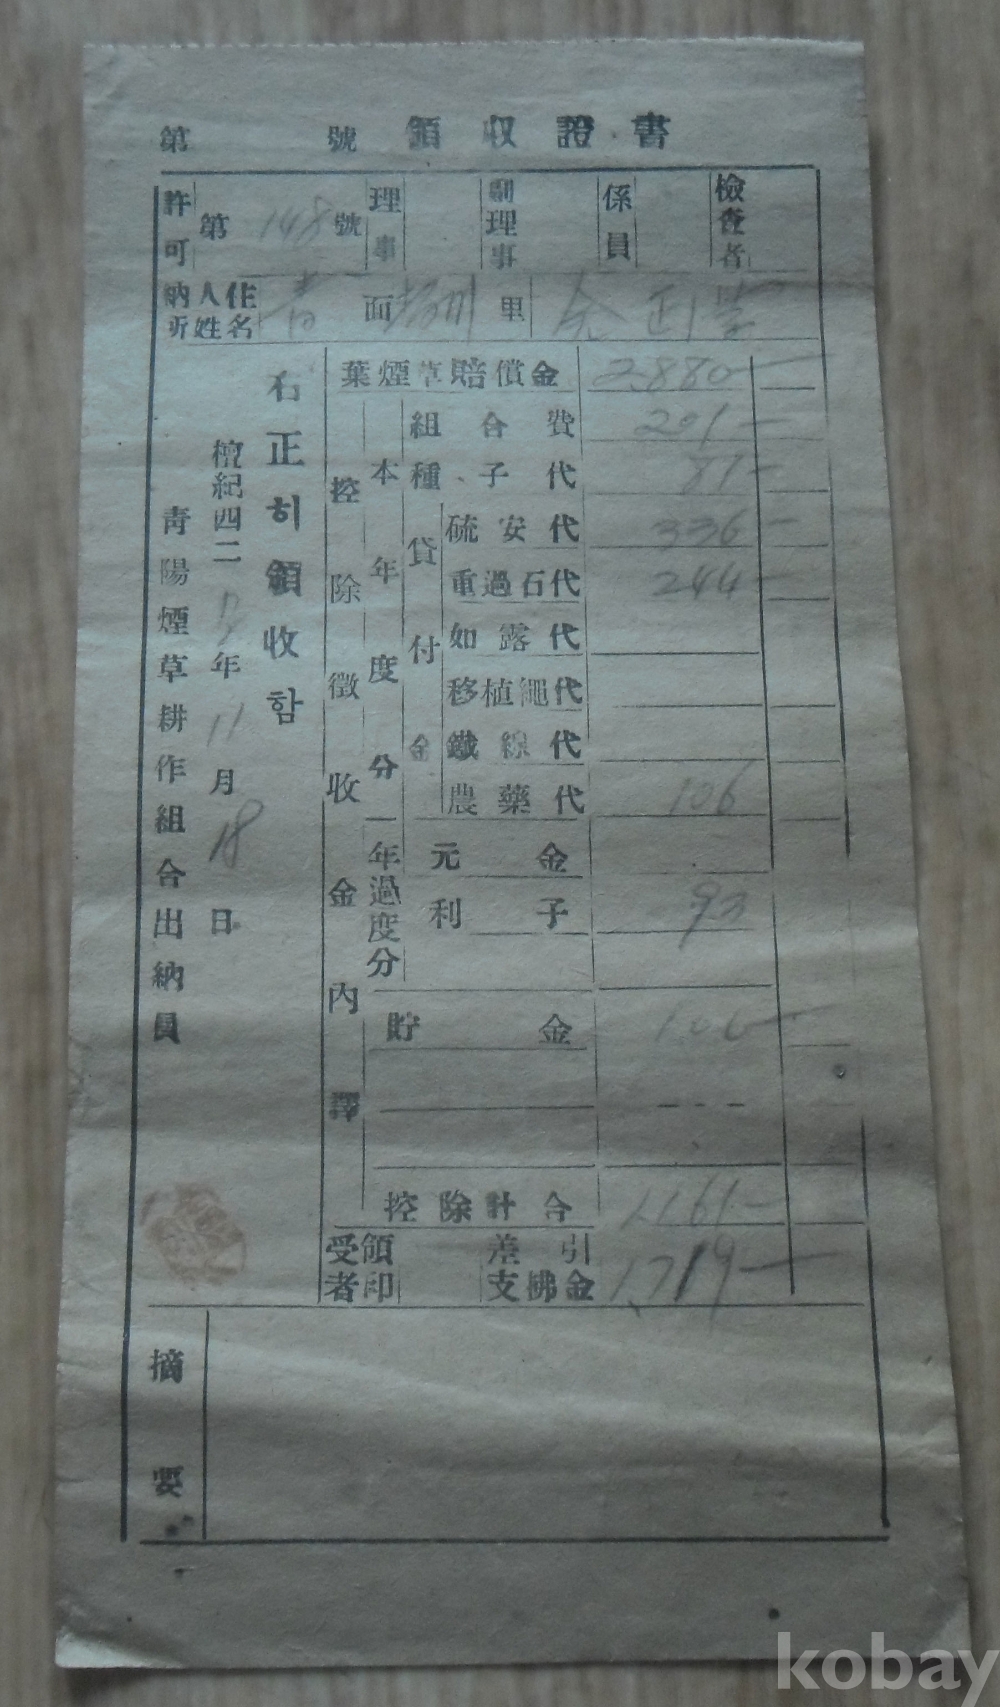 第 號 領収證書
許可 第 148 號 理事 副理事 係員 檢査者
納入住所姓名 青 面 里 余
葉煙草賠償金 2,880-
控除徵收金內譯
本年度分
組合費 201-
種子代 81-
貸付金
硫安代 336-
重過石代 244-
如露代
移植繩代
鐵線代
農藥代 106
一年過度分
元金
利子 93
貯金 106-
---
控除計合 1,161-
受領者印 差引支拂金 1,719-
右正히領收함
檀紀四二 年 11 月 18 日
靑陽煙草耕作組合出納員
摘要
kobay